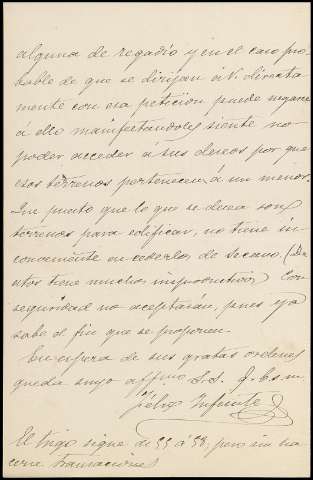 alguna de regadío y en el caso pro-
bable de que se dirijan á V. directa
mente con esa petición puede negarse
á ello manifestandoles siente no
poder acceder a sus deseos por que
esos terrenos pertenecen á un menor.
En punto que lo que se desea son
terrenos para edificar, no tiene in-
conveniente en cederlos de secano. (De
estos tiene muchos improductivos) Con
seguridad no aceptarán, pues ya
sabe el fin que se proponen.
En espera de sus gratas ordenes
queda suyo affmo S.S. q.b.s.m
Felix Infante
El trigo sigue de 55 á 58, pero sin ha
cerse transaciones